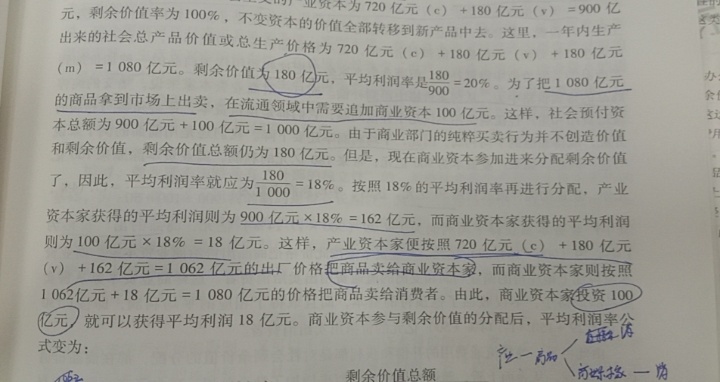 产业资本为720亿元(c)+180亿元(v)=900亿
元,剩余价值率为100%,不变资本的价值全部转移到新产品中去。这里,一年内生产
出来的社会总产品价值或总生产价格为720亿元(c)+180亿元(v)+180亿元
(m)=1 080亿元。剩余价值为180亿元,平均利润率是180/900=20%。为了把1 080亿元
的商品拿到市场上出卖,在流通领域中需要追加商业资本100亿元。这样,社会预付资
本总额为900亿元+100亿元=1 000亿元。由于商业部门的纯粹买卖行为并不创造价值
和剩余价值,剩余价值总额仍为180亿元。但是,现在商业资本参加进来分配剩余价值
了,因此,平均利润率就应为180/1 000=18%。按照18%的平均利润率再进行分配,产业
资本家获得的平均利润则为900亿元×18%=162亿元,而商业资本家获得的平均利润
则为100亿元×18%=18亿元。这样,产业资本家便按照720亿元(c)+180亿元
(v)+162亿元=1 062亿元的出厂价格把商品卖给商业资本家,而商业资本家则按照
1 062亿元+18亿元=1 080亿元的价格把商品卖给消费者。由此,商业资本家投资100
亿元,就可以获得平均利润18亿元。商业资本参与剩余价值的分配后,平均利润率公
式变为:
剩余价值总额